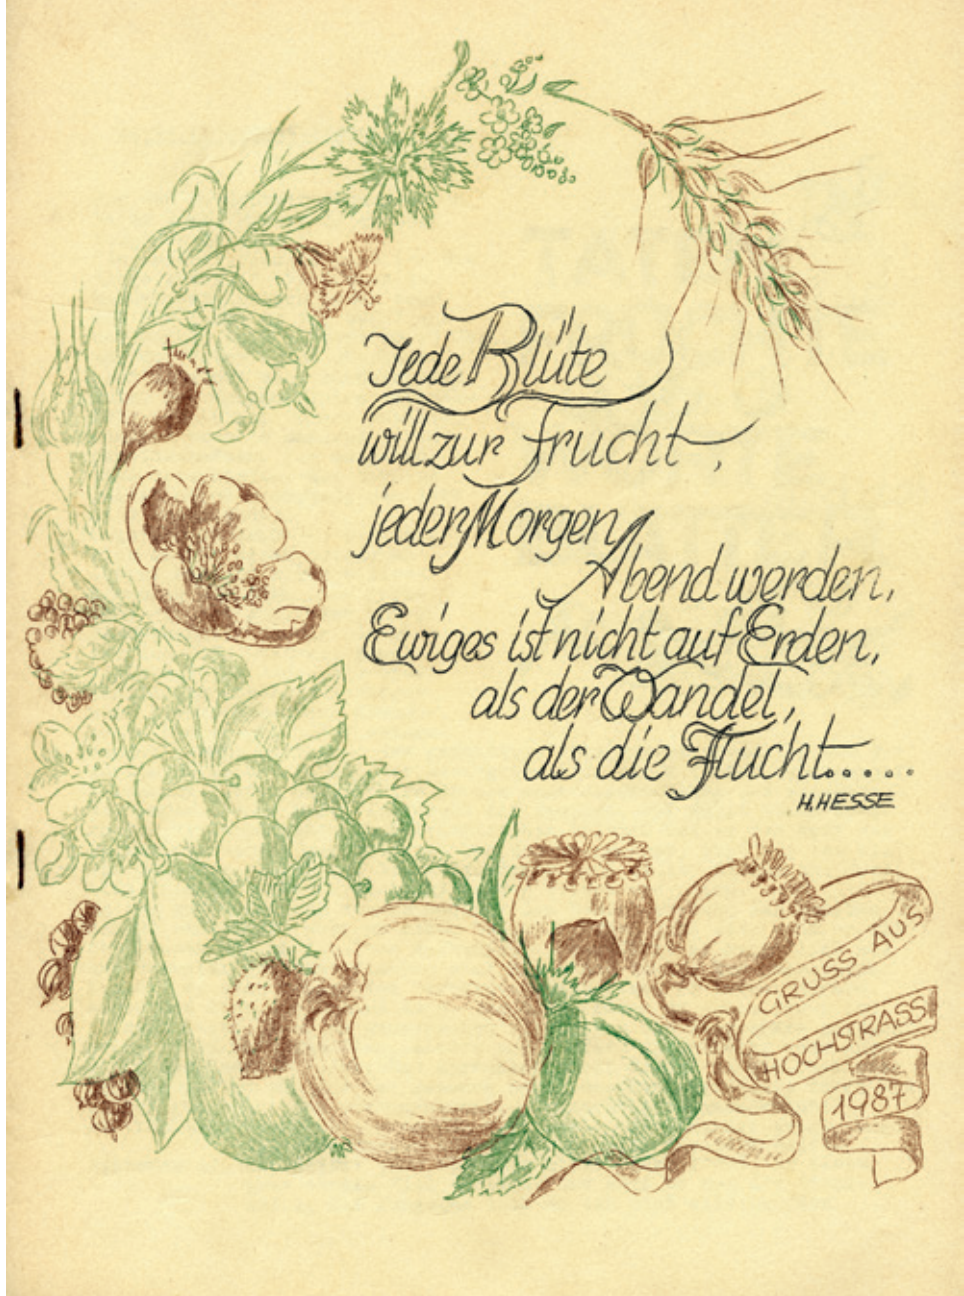 Jede Blüte
will zur Frucht,
jeder Morgen
Abend werden,
Ewiges ist nicht auf Erden,
als der Wandel,
als die Flucht.....
H. HESSE
GRUSS AUS
HOCHSTRASS
1987